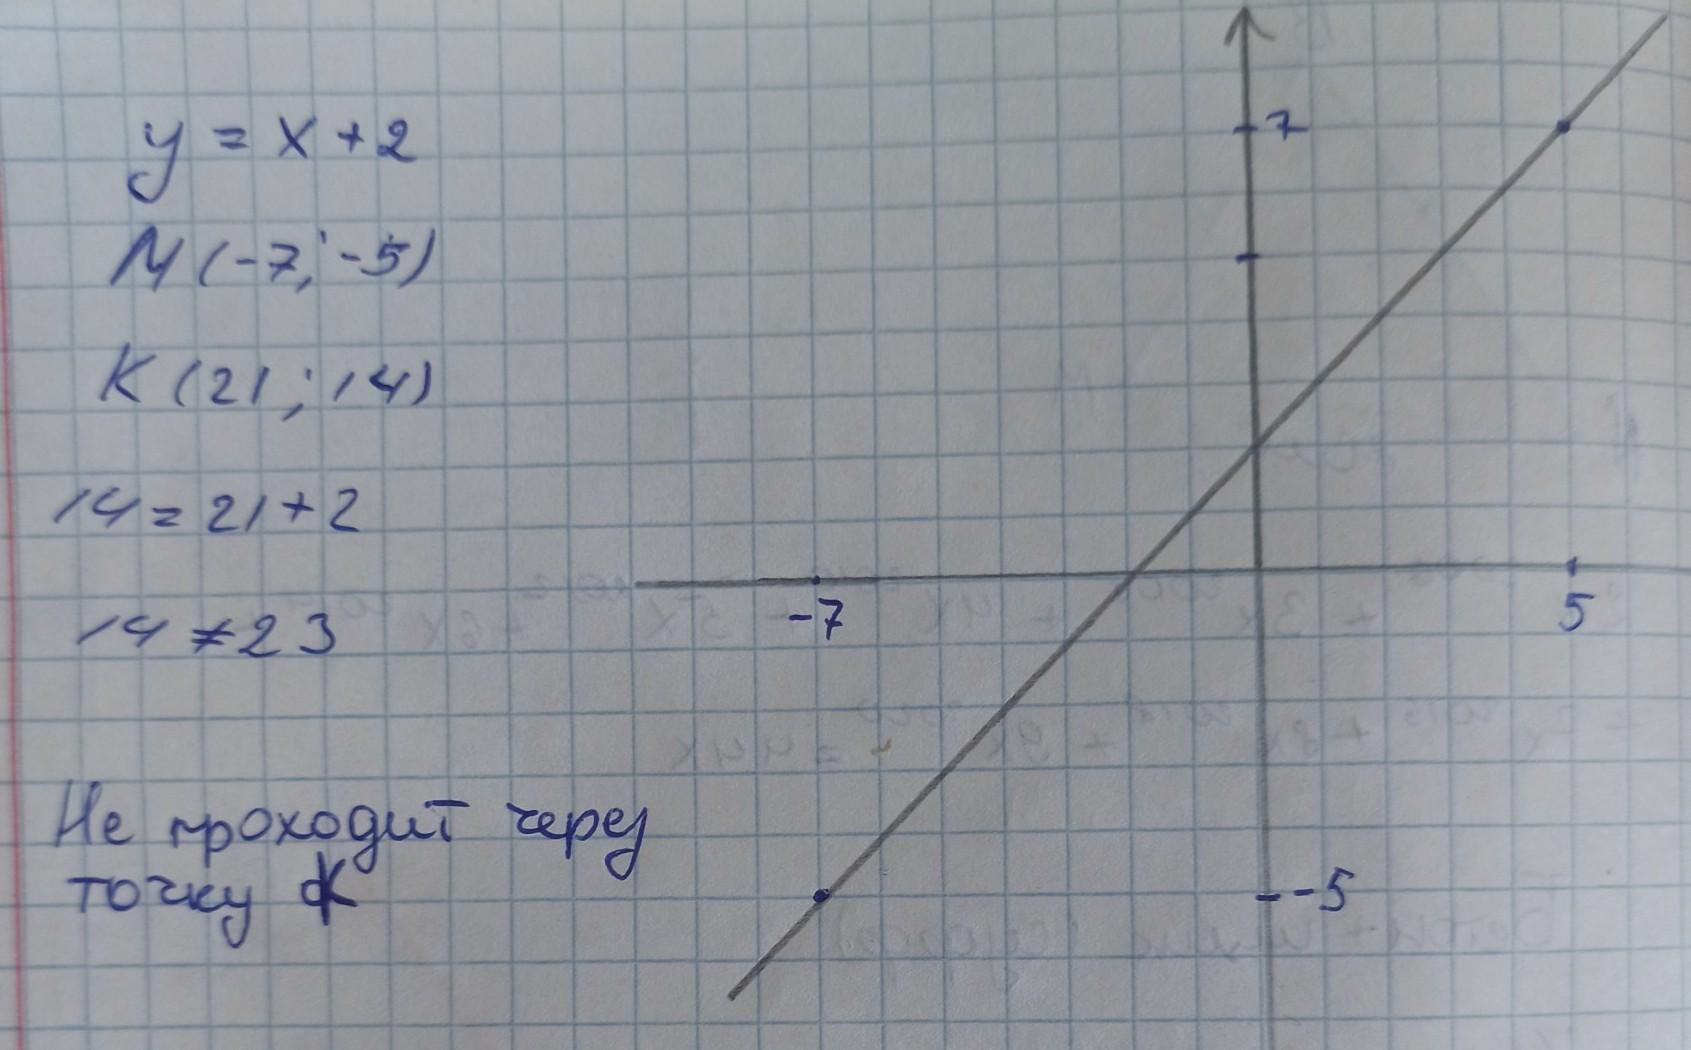 y = x + 2
M (-7; -5)
K (21; 14)
14 = 21 + 2
14 ≠ 23
Не проходит через
точку K
7
-7
5
-5